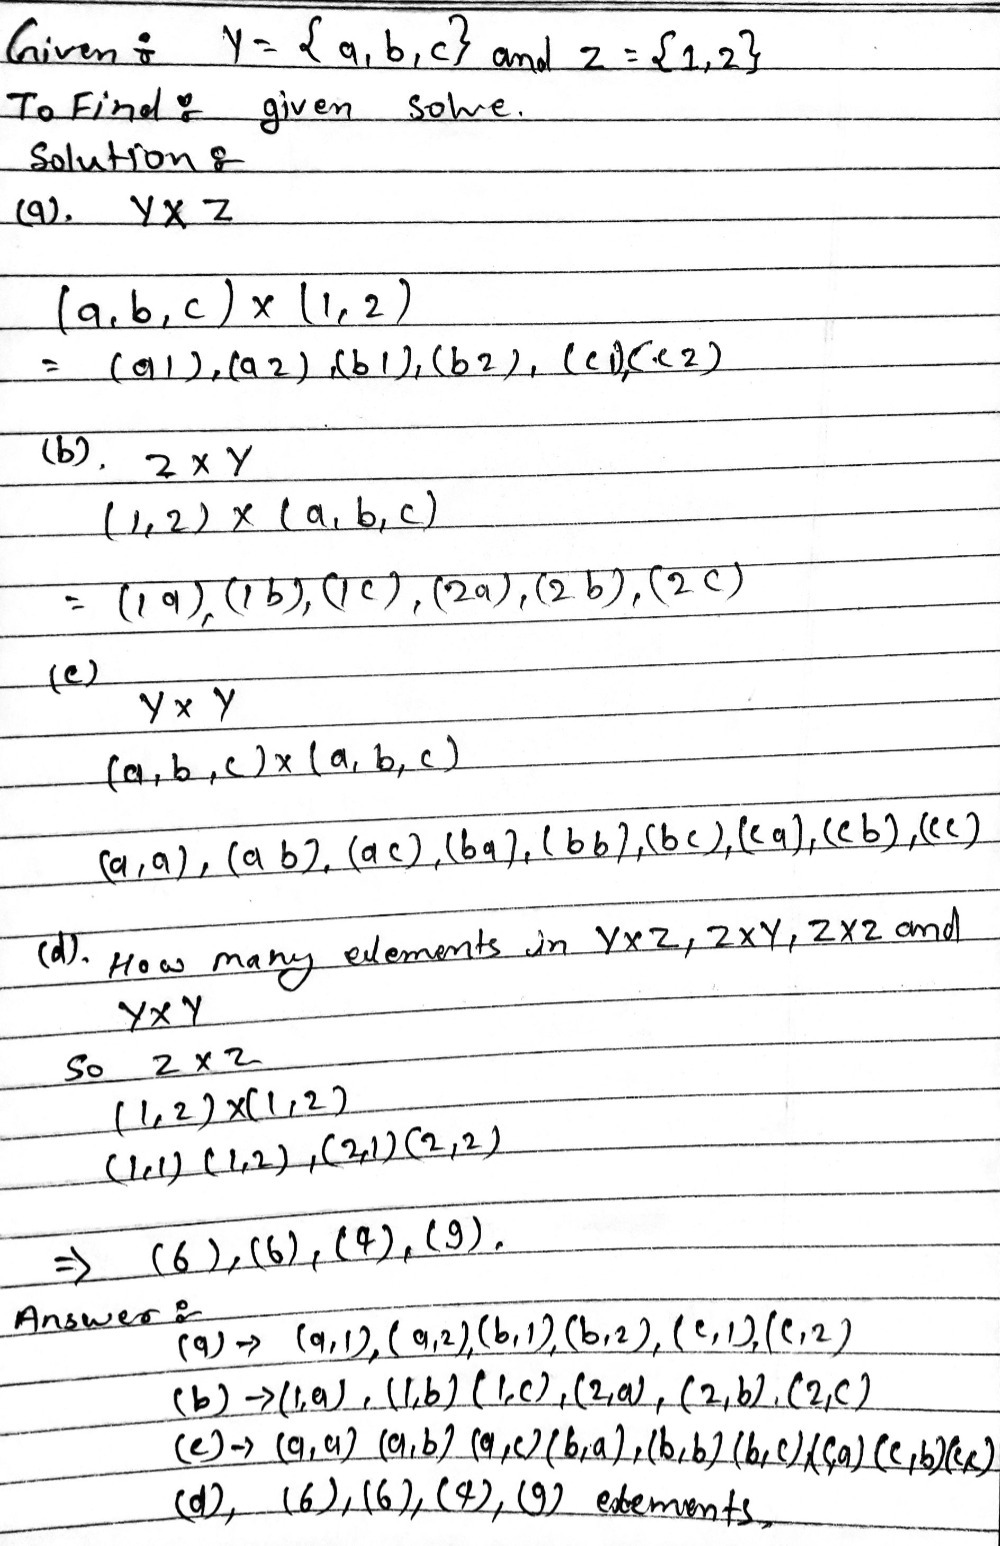 Given : Y = { a, b, c} and Z = {1, 2}
To Find : given solve.
Solution :
(a). Y X Z
(a, b, c) x (1, 2)
= (a1), (a2), (b1), (b2), (c1), (c2)
(b). Z x Y
(1, 2) x (a, b, c)
= (1a), (1b), (1c), (2a), (2b), (2c)
(c)
Y x Y
(a, b, c) x (a, b, c)
(a, a), (ab), (ac), (ba), (bb), (bc), (ca), (cb), (cc)
(d). How many elements in YxZ, ZxY, ZxZ and
YxY
So Z x Z
(1, 2) x (1, 2)
(1,1) (1,2), (2,1) (2,2)
⇒ (6), (6), (4), (9).
Answer :
(a) → (a,1), (a,2), (b,1), (b,2), (c,1), (c,2)
(b) → (1,a), (1,b) (1,c), (2,a), (2,b), (2,c)
(c) → (a,a) (a,b) (a,c) (b,a), (b,b) (b,c) (c,a) (c,b) (c,c)
(d), (6), (6), (4), (9) elements.